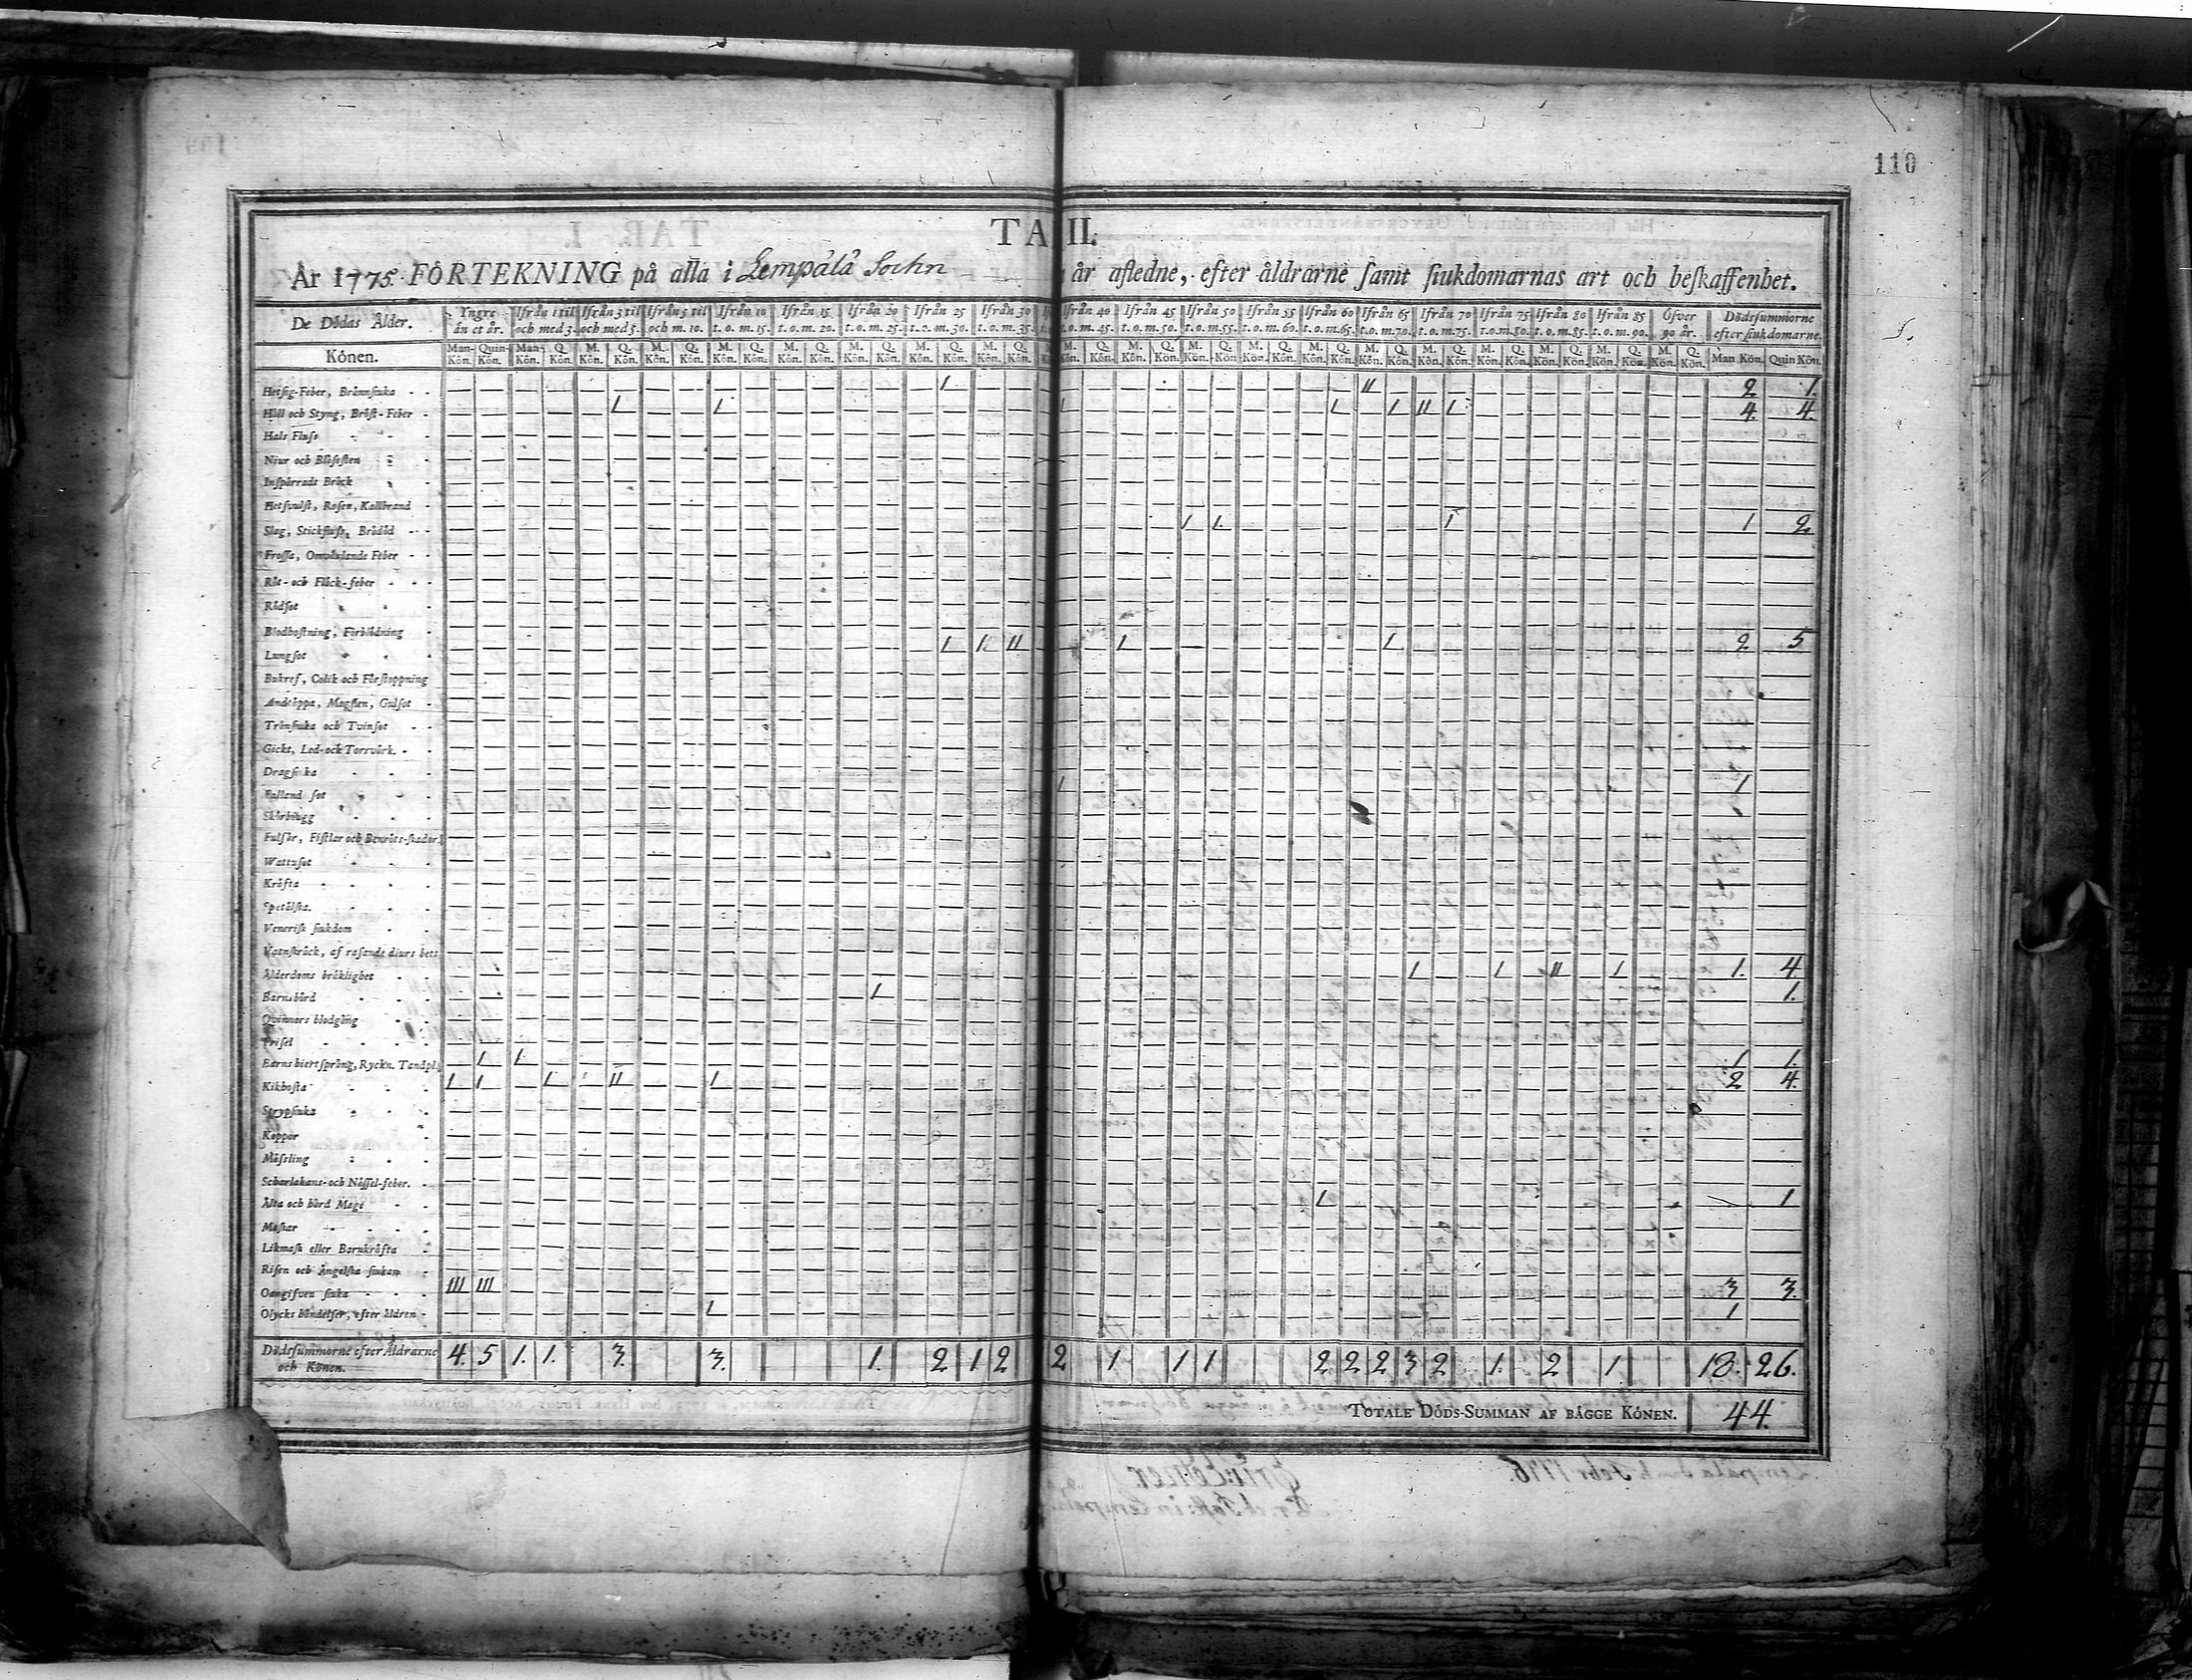 110
TAB. II.
År 1775. FÖRTEKNING på alla i Lempälä Sochn år afledne, efter åldrarne samt siukdomarnas art och beskaffenhet.
De Dödas Ålder. Yngre än et år. Ifrån 1 til och med 3. Ifrån 3 til och med 5. Ifrån 5 til och m. 10. Ifrån 10 t.o.m. 15. Ifrån 15 t.o.m. 20. Ifrån 20 t.o.m. 25. Ifrån 25 t.o.m. 30. Ifrån 30 t.o.m. 35. Ifrån 40 t.o.m. 45. Ifrån 45 t.o.m. 50. Ifrån 50 t.o.m. 55. Ifrån 55 t.o.m. 60. Ifrån 60 t.o.m. 65. Ifrån 65 t.o.m. 70. Ifrån 70 t.o.m. 75. Ifrån 75 t.o.m. 80. Ifrån 80 t.o.m. 85. Ifrån 85 t.o.m. 90. Öfver 90 år. Dödssummorne efter siukdomarne.
Könen. Man-Kön. Quin-Kön. Man-Kön. Q. Kön. M. Kön. Q. Kön. M. Kön. Q. Kön. M. Kön. Q. Kön. M. Kön. Q. Kön. M. Kön. Q. Kön. M. Kön. Q. Kön. M. Kön. Q. Kön. M. Kön. Q. Kön. M. Kön. Q. Kön. M. Kön. Q. Kön. M. Kön. Q. Kön. M. Kön. Q. Kön. M. Kön. Q. Kön. M. Kön. Q. Kön. M. Kön. Q. Kön. M. Kön. Q. Kön. M. Kön. Q. Kön. M. Kön. Q. Kön. Man Kön. Quin Kön.
Hetsig-Feber, Brännsiuka 1 II 2 1.
Håll och Styng, Bröst-Feber 1 1 1 1 1 II 1 4. 4.
Hals Fluss
Niur och Blåsesten
Inspärradt Bråck
Hetsvulst, Rosen, Kallbrand
Slag, Stickfluss, Brådöd 1 1. 1 1 2
Frossa, Omväxlande Feber
Röt- och Fläck-feber
Rödsot
Blodhostning, Förblödning
Lungsot 1 1. II 1 1 2 5
Bukref, Colik och Förstoppning
Andtäppa, Magsten, Gulsot
Trånsiuka och Tvinsot
Gickt, Led-och Torrvärk.
Dragsiuka
Falland sot 1 1
Skörbiugg
Fulsår, Fistlar och Benröts-skador
Wattusot
Kräfta
Spetälska.
Venerisk siukdom
Vatnskräck, af rasande diurs bett
Ålderdoms bräklighet 1 1 II 1 1. 4
Barnsbörd 1 1.
Quinnors blodgång
Frisel
Barns hiertsprång, Ryckn. Tandpl. 1 1. 1 1.
Kikhosta 1 1 1 II 1 2 4.
Strypsiuka
Koppor
Mässling
Scharlakans- och Nässel-feber.
Älta och hård Mage 1 1
Maskar
Likmask eller Barnkräfta
Risen och Ängelska siukan
Oangifven siuka III III 3 3.
Olycks händelser, efter bladren 1 1
Dödssummorne efter Åldrarne och Könen. 4. 5 1. 1. 3. 3. 1. 2 1 2 2 1. 1 1 2 2 2 3 2 1. 2 1. 18. 26.
TOTALE DÖDS-SUMMAN AF BÄGGE KÖNEN. 44.